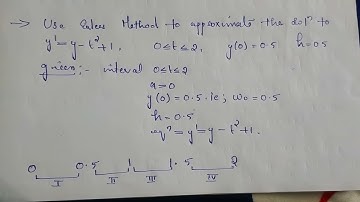 → Use Eulers Method to approximate the solⁿ to
y' = y - t² + 1, 0 ≤ t ≤ 2, y(0) = 0.5 h = 0.5
given:- interval 0 ≤ t ≤ 2
a = 0
y(0) = 0.5 . ie; w₀ = 0.5
h = 0.5
eqⁿ = y' = y - t² + 1.
0 0.5 1 1.5 2
I II III IV